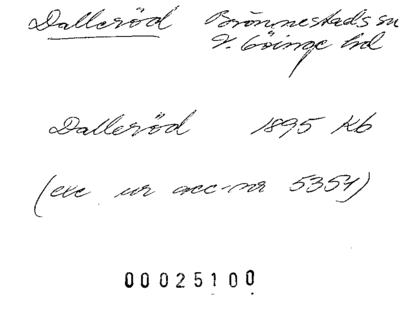 Dalleröd Brönnestads sn
V. Göinge hd
Dalleröd 1895 Kb
(exc ur acc-nr 5354)
00025100